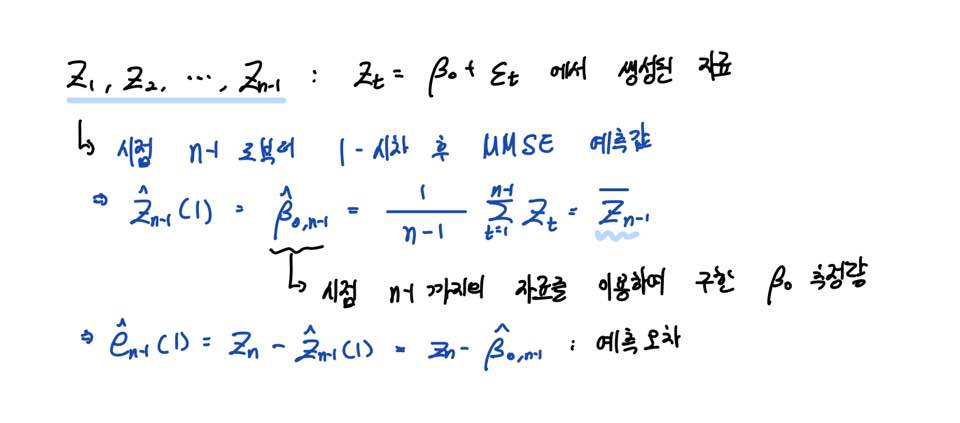 Z₁, Z₂, ⋯, Zₙ₋₁ : Zₜ = β₀ + εₜ 에서 생성된 자료
↳ 시점 n-1 로부터 1-시차 후 MMSE 예측값
⇒ Ẑₙ₋₁(1) = β̂₀,ₙ₋₁ = 1/(n-1) Σₜ₌₁ⁿ⁻¹ Zₜ = Z̄ₙ₋₁
↳ 시점 n-1 까지의 자료를 이용하여 구한 β₀ 측정량
⇒ êₙ₋₁(1) = Zₙ - Ẑₙ₋₁(1) = Zₙ - β̂₀,ₙ₋₁ : 예측오차